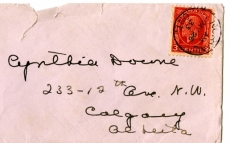 3 CENTS 3
Cynthia Downe
233-12th Ave. N.W.
Calgary
Alberta